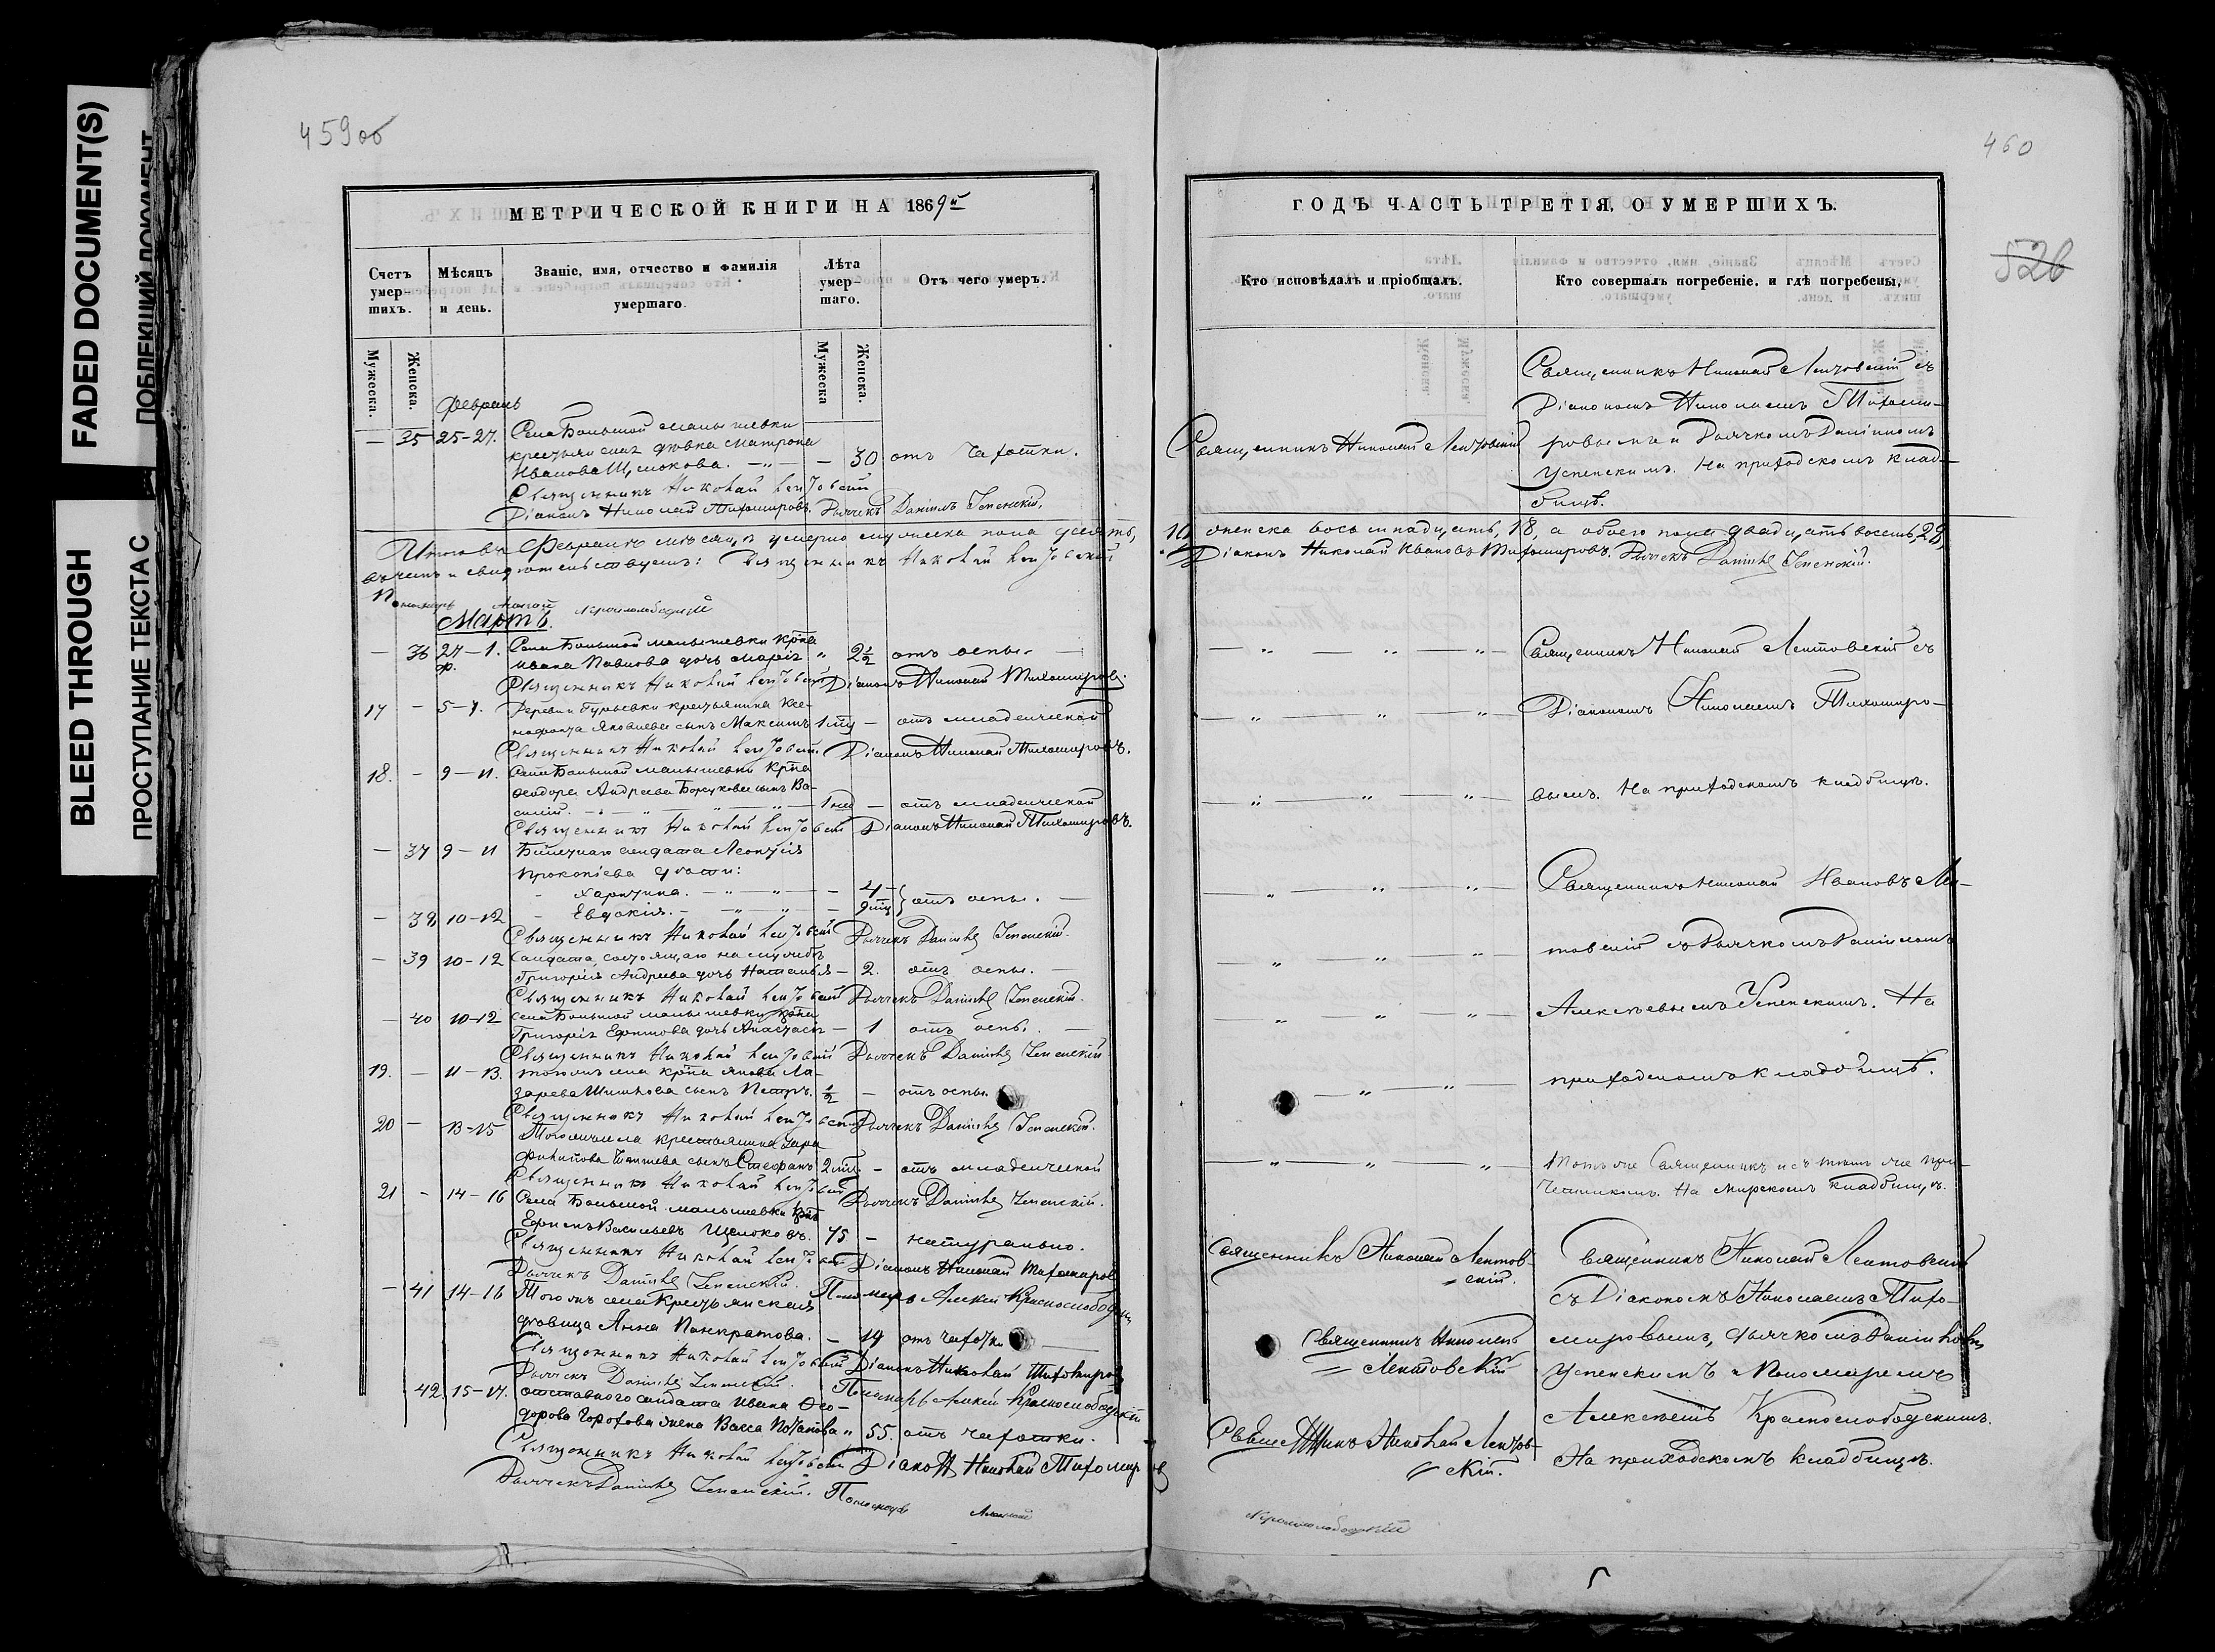 FADED DOCUMENT(S)
BLEED THROUGH
ПРОСТУПАНИЕ ТЕКСТА С
459об
МЕТРИЧЕСКОЙ КНИГИ НА 1869й
Счетъ умер-шихъ.
Мѣсяцъ и день.
Званіе, имя, отчество и фамилія умершаго.
Лѣта умер-шаго.
Отъ чего умеръ.
Мужеска.
Женска.
Мужеска
Женска.
Февраль
— 35 25-27. Села Большой Малышевки
крестьянская дѣвка Матрона
Иванова Щелокова. — — 30 отъ чахотки.
Священникъ Николай Лентовскій
Діаконъ Николай Тихомировъ. Дьячекъ Даніилъ Успенскій.
Итого въ Февралѣ мѣсяцѣ умерло мужеска пола десять,
въ чемъ и свидѣтельствуемъ: Священникъ Николай Лентовскій
Пономарь Алексѣй Краснослободскій
Мартъ.
— 36 27-1. Села Большой Малышевки крна
ф. Ивана Павлова дочь Марія „ 2½ отъ оспы. —
Священникъ Николай Лентовскій Діаконъ Николай Тихомировъ.
17 — 5-7. Деревни Гурьевки крестьянина Ксе-
нофонта Яковлева сынъ Максимъ 1 мц — отъ младенческой
Священникъ Николай Лентовскій Діаконъ Николай Тихомировъ.
18. — 9-11. Села Большой Малышевки крна
Ѳеодора Андреева сынъ Ва-
силій. — 1 нед — отъ младенческой
Священникъ Николай Лентовскій Діаконъ Николай Тихомировъ.
— 37 9-11 Билетнаго солдата Леонтія
Прокопіева дѣти:
Харитина. — 4 —
— 38 10-12 Евдокія. — 9 мц } отъ оспы. —
Священникъ Николай Лентовскій Дьячекъ Даніилъ Успенскій.
— 39 10-12 Солдата, состоящаго на службѣ
Григорія Андреева дочь Наталья — 2. отъ оспы. —
Священникъ Николай Лентовскій Дьячекъ Даніилъ Успенскій.
— 40 10-12 Села Большой Малышевки крна
Григорія Ефимова дочь Анастасія — 1 отъ оспы. —
Священникъ Николай Лентовскій Дьячекъ Даніилъ Успенскій.
19. — 11-13. Тогоже села крна Якова Ла-
зарева Шишкова сынъ Петръ. ½ — отъ оспы.
Священникъ Николай Лентовскій Дьячекъ Даніилъ Успенскій.
20 — 13-15 Тогоже села крестьянина
Филипова сынъ Стефанъ 2 мц. — отъ младенческой
Священникъ Николай Лентовскій Дьячекъ Даніилъ Успенскій.
21 — 14-16 Села Большой Малышевки крнъ
Ефимъ Васильевъ Щелоковъ. 75 — натурально.
Священникъ Николай Лентовскій Діаконъ Николай Тихомировъ
Дьячекъ Даніилъ Успенскій. Пономарь Алексѣй Краснослободскій
— 41 14-16 Тогожъ села Крестьянская
дѣвица Анна Панкратова. — 19 отъ чахотки —
Священникъ Николай Лентовскій Діаконъ Николай Тихомировъ
Дьячекъ Даніилъ Успенскій. Пономарь Алексѣй Краснослободскій
42 15-17. Отставнаго солдата Ивана Ѳео-
дорова Горохова жена Васса Потапова „ 55. отъ чахотки.
Священникъ Николай Лентовскій Діаконъ Николай Тихомировъ
Дьячекъ Даніилъ Успенскій. Пономарь Алексѣй
460
526
ГОДЪ ЧАСТЬ ТРЕТІЯ, О УМЕРШИХЪ.
Кто исповѣдалъ и пріобщалъ.
Кто совершалъ погребеніе, и гдѣ погребены,
Священникъ Николай Лентовскій
Священникъ Николай Лентовскій съ
Діакономъ Николаемъ Тихоми-
ровымъ и Дьячкомъ Даніиломъ
Успенскимъ. На приходскомъ клад-
бищѣ.
10, женска восьмнадцать, 18, а обоего пола двадцать восемь, 28,
Діаконъ Николай Ивановъ Тихомировъ. Дьячекъ Даніилъ Успенскій.
Священникъ Николай Лентовскій съ
Діакономъ Николаемъ Тихомиро-
вымъ. На приходскомъ кладбищѣ.
Священникъ Николай Ивановъ Лен-
товскій съ Дьячкомъ Даніиломъ
Алексѣевымъ Успенскимъ. На
приходскомъ кладбищѣ.
Тотъ же Священникъ и съ тѣмъ же при-
четникомъ. На мирскомъ кладбищѣ.
Священникъ Николай Лентов-
скій.
Священникъ Николай Лентовскій
съ Діакономъ Николаемъ Тихо-
Священникъ Николай
Лентовскій
мировымъ, дьячкомъ Даніиломъ
Успенскимъ и Пономаремъ
Алексѣемъ Краснослободскимъ.
Священникъ Николай Лентов-
скій.
На приходскомъ кладбищѣ.
Краснослободскій